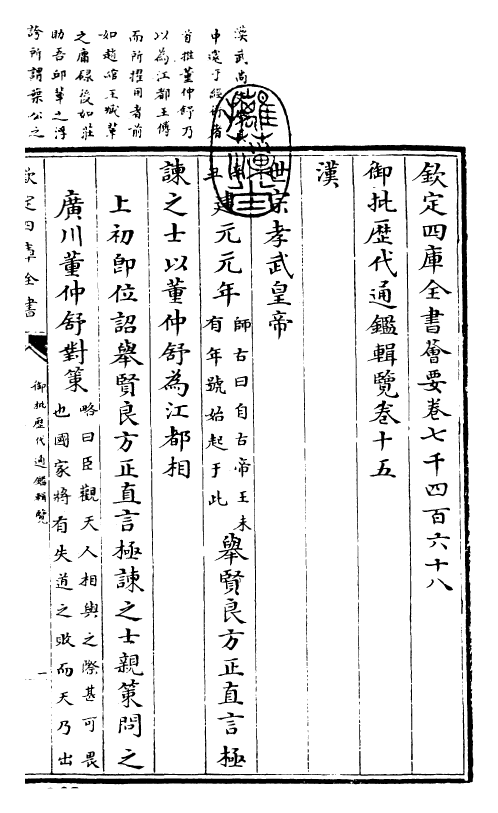 欽定四庫全書薈要卷七千四百六十八
御批歷代通鑑輯覽卷十五
漢
世宗孝武皇帝
辛丑建元元年
師古曰自古帝王未
有年號始起于此
舉賢良方正直言極
諫之士以董仲舒為江都相
上初即位詔舉賢良方正直言極諫之士親策問之
廣川董仲舒對策
略曰臣觀天人相與之際甚可畏
也國家將有失道之敗而天乃出
漢武尚
中邃于經術者
首推董仲舒乃
以為江都王傅
而所擢用者前
如趙綰王臧輩
之庸碌後如莊
助吾邱輩之浮
誇所謂葉公之
欽定四庫全書
御批歷代通鑑輯覽
一